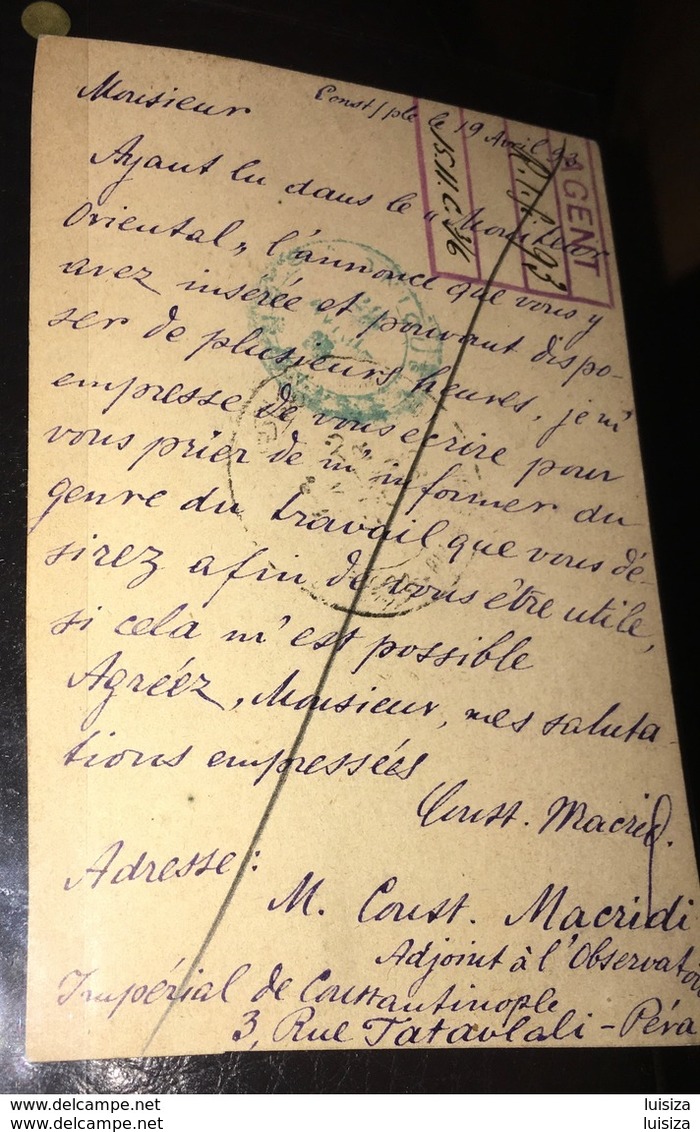 Const/ple le 19 Avril 93
Monsieur
Ayant lu dans le "Moniteur
Oriental" l'annonce que vous y
avez insérée et pouvant dispo-
ser de plusieurs heures, je m'
empresse de vous écrire pour
vous prier de m'informer du
genre du travail que vous dé-
sirez afin de vous être utile,
si cela m'est possible
Agréez, Monsieur, mes saluta-
tions empressées
Const. Macridi
Adresse:
M. Const. Macridi
Adjoint à l'Observatoi
Impérial de Constantinople
3, Rue Tataolali - Péra
AGENT
www.delcampe.net luisiza
www.delcampe.net luisiza